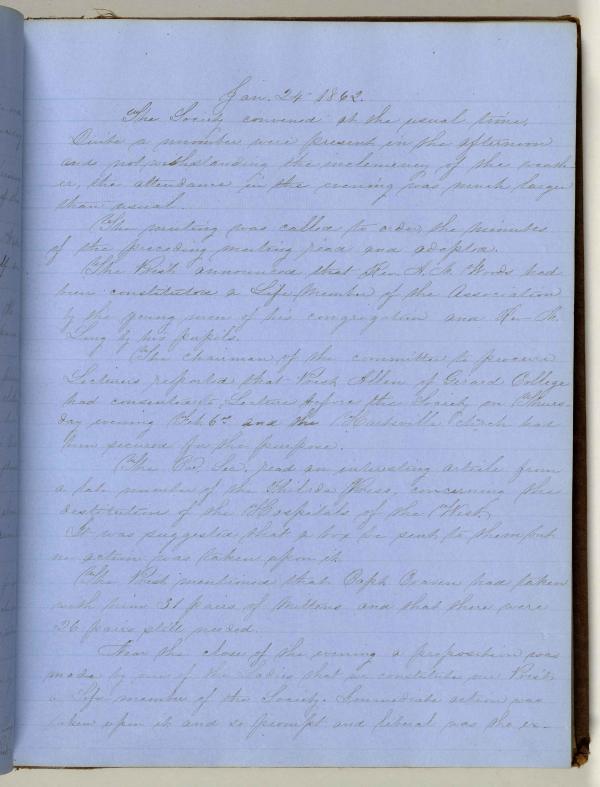 Jan. 24 1862.
The Society convened at the usual time.
Quite a number were present in the afternoon
and notwithstanding the inclemency of the weath-
er, the attendance in the evening was much larger
than usual.
The meeting was called to order, the minutes
of the preceding meeting read and adopted.
The Pres't announced that Rev. A. M. Woods had
been constituted a Life Member of the Association
by the young men of his congregation and Rev. M.
Long by his pupils.
The chairman of the committee to procure
Lecturers reported that Prest. Allen of Gerard College
had consented to Lecture before the Society on Thurs-
day evening Feb. 6th and the Hartsville Church had
been secured for the purpose.
The Sec. read an interesting article from
a late number of the Philada Press, concerning the
destitution of the Hospitals of the West.
It was suggested that a box be sent to them but
no action was taken upon it.
The Prest mentioned that Capt Craven had taken
with him 31 pairs of Mittens and that there were
26 pairs still needed.
Near the close of the evening a proposition was
made by one of the Ladies that we constitute our Pres't
a life member of the Society. Immediate action was
taken upon it and so prompt and liberal was the ex-